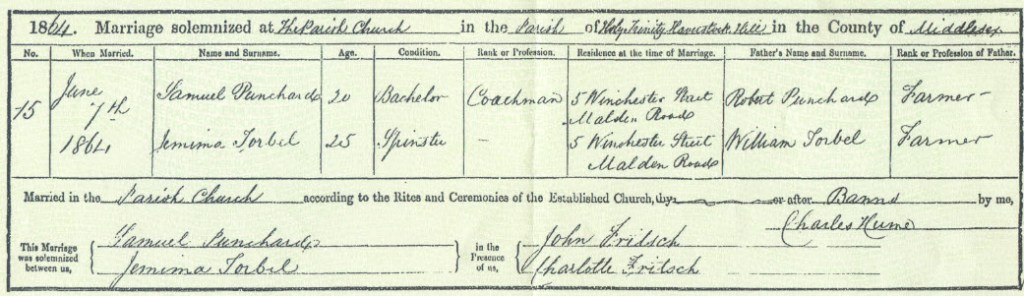 1864. Marriage solemnized at The Parish Church in the Parish of Holy Trinity Haverstock Hill in the County of Middlesex
No. When Married. Name and Surname. Age. Condition. Rank or Profession. Residence at the time of Marriage. Father's Name and Surname. Rank or Profession of Father.
15 June 7th 1864 Samuel Punchard 20 Bachelor Coachman 5 Winchester Street Malden Road Robert Punchard Farmer
Jemima Torbel 25 Spinster — 5 Winchester Street Malden Road William Torbel Farmer
Married in the Parish Church according to the Rites and Ceremonies of the Established Church, by or after Banns by me,
Charles Hume
This Marriage was solemnized between us, Samuel Punchard
Jemima Torbel
in the Presence of us, John Fritsch
Charlotte Fritsch